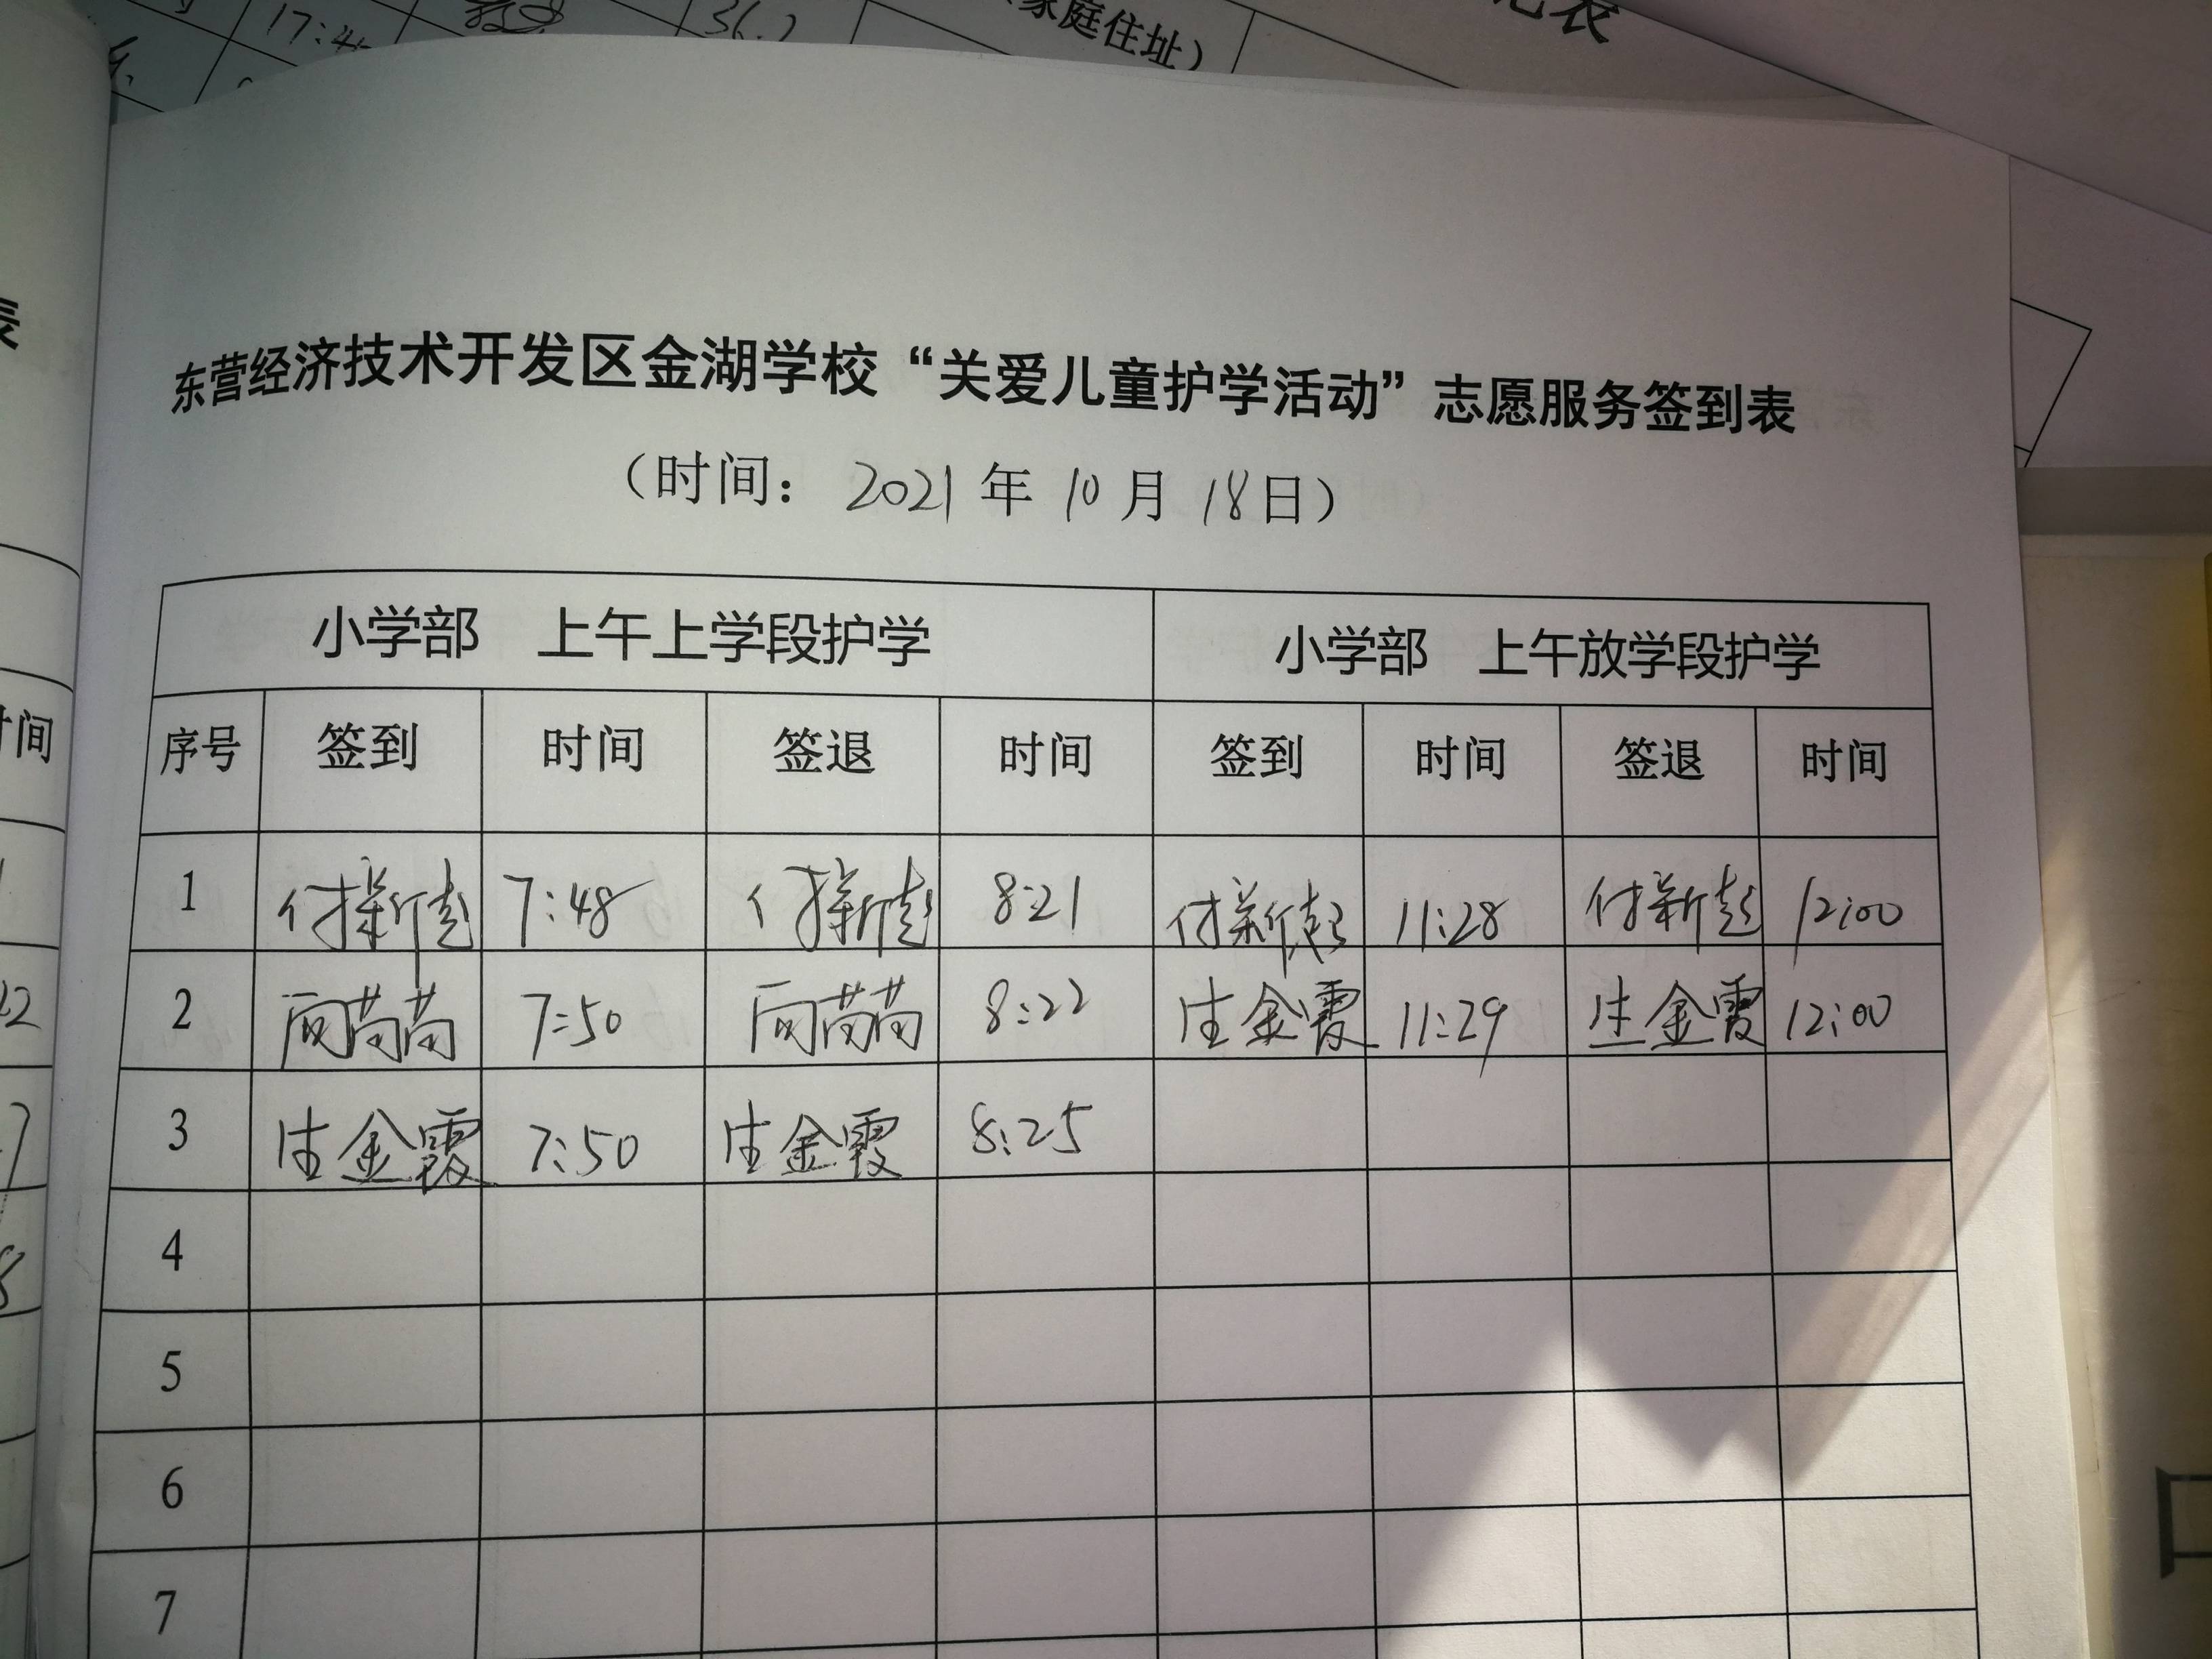 17:4
36.2
家庭住址）
表
东营经济技术开发区金湖学校“关爱儿童护学活动”志愿服务签到表
（时间： 2021 年 10 月 18日）
小学部 上午上学段护学 小学部 上午放学段护学
序号 签到 时间 签退 时间 签到 时间 签退 时间
1 付新彪 7:48 付新彪 8:21 付新彪 11:28 付新彪 12:00
2 苘苘 7:50 苘苘 8:22 生金霞 11:29 生金霞 12:00
3 生金霞 7:50 生金霞 8:25
4
5
6
7